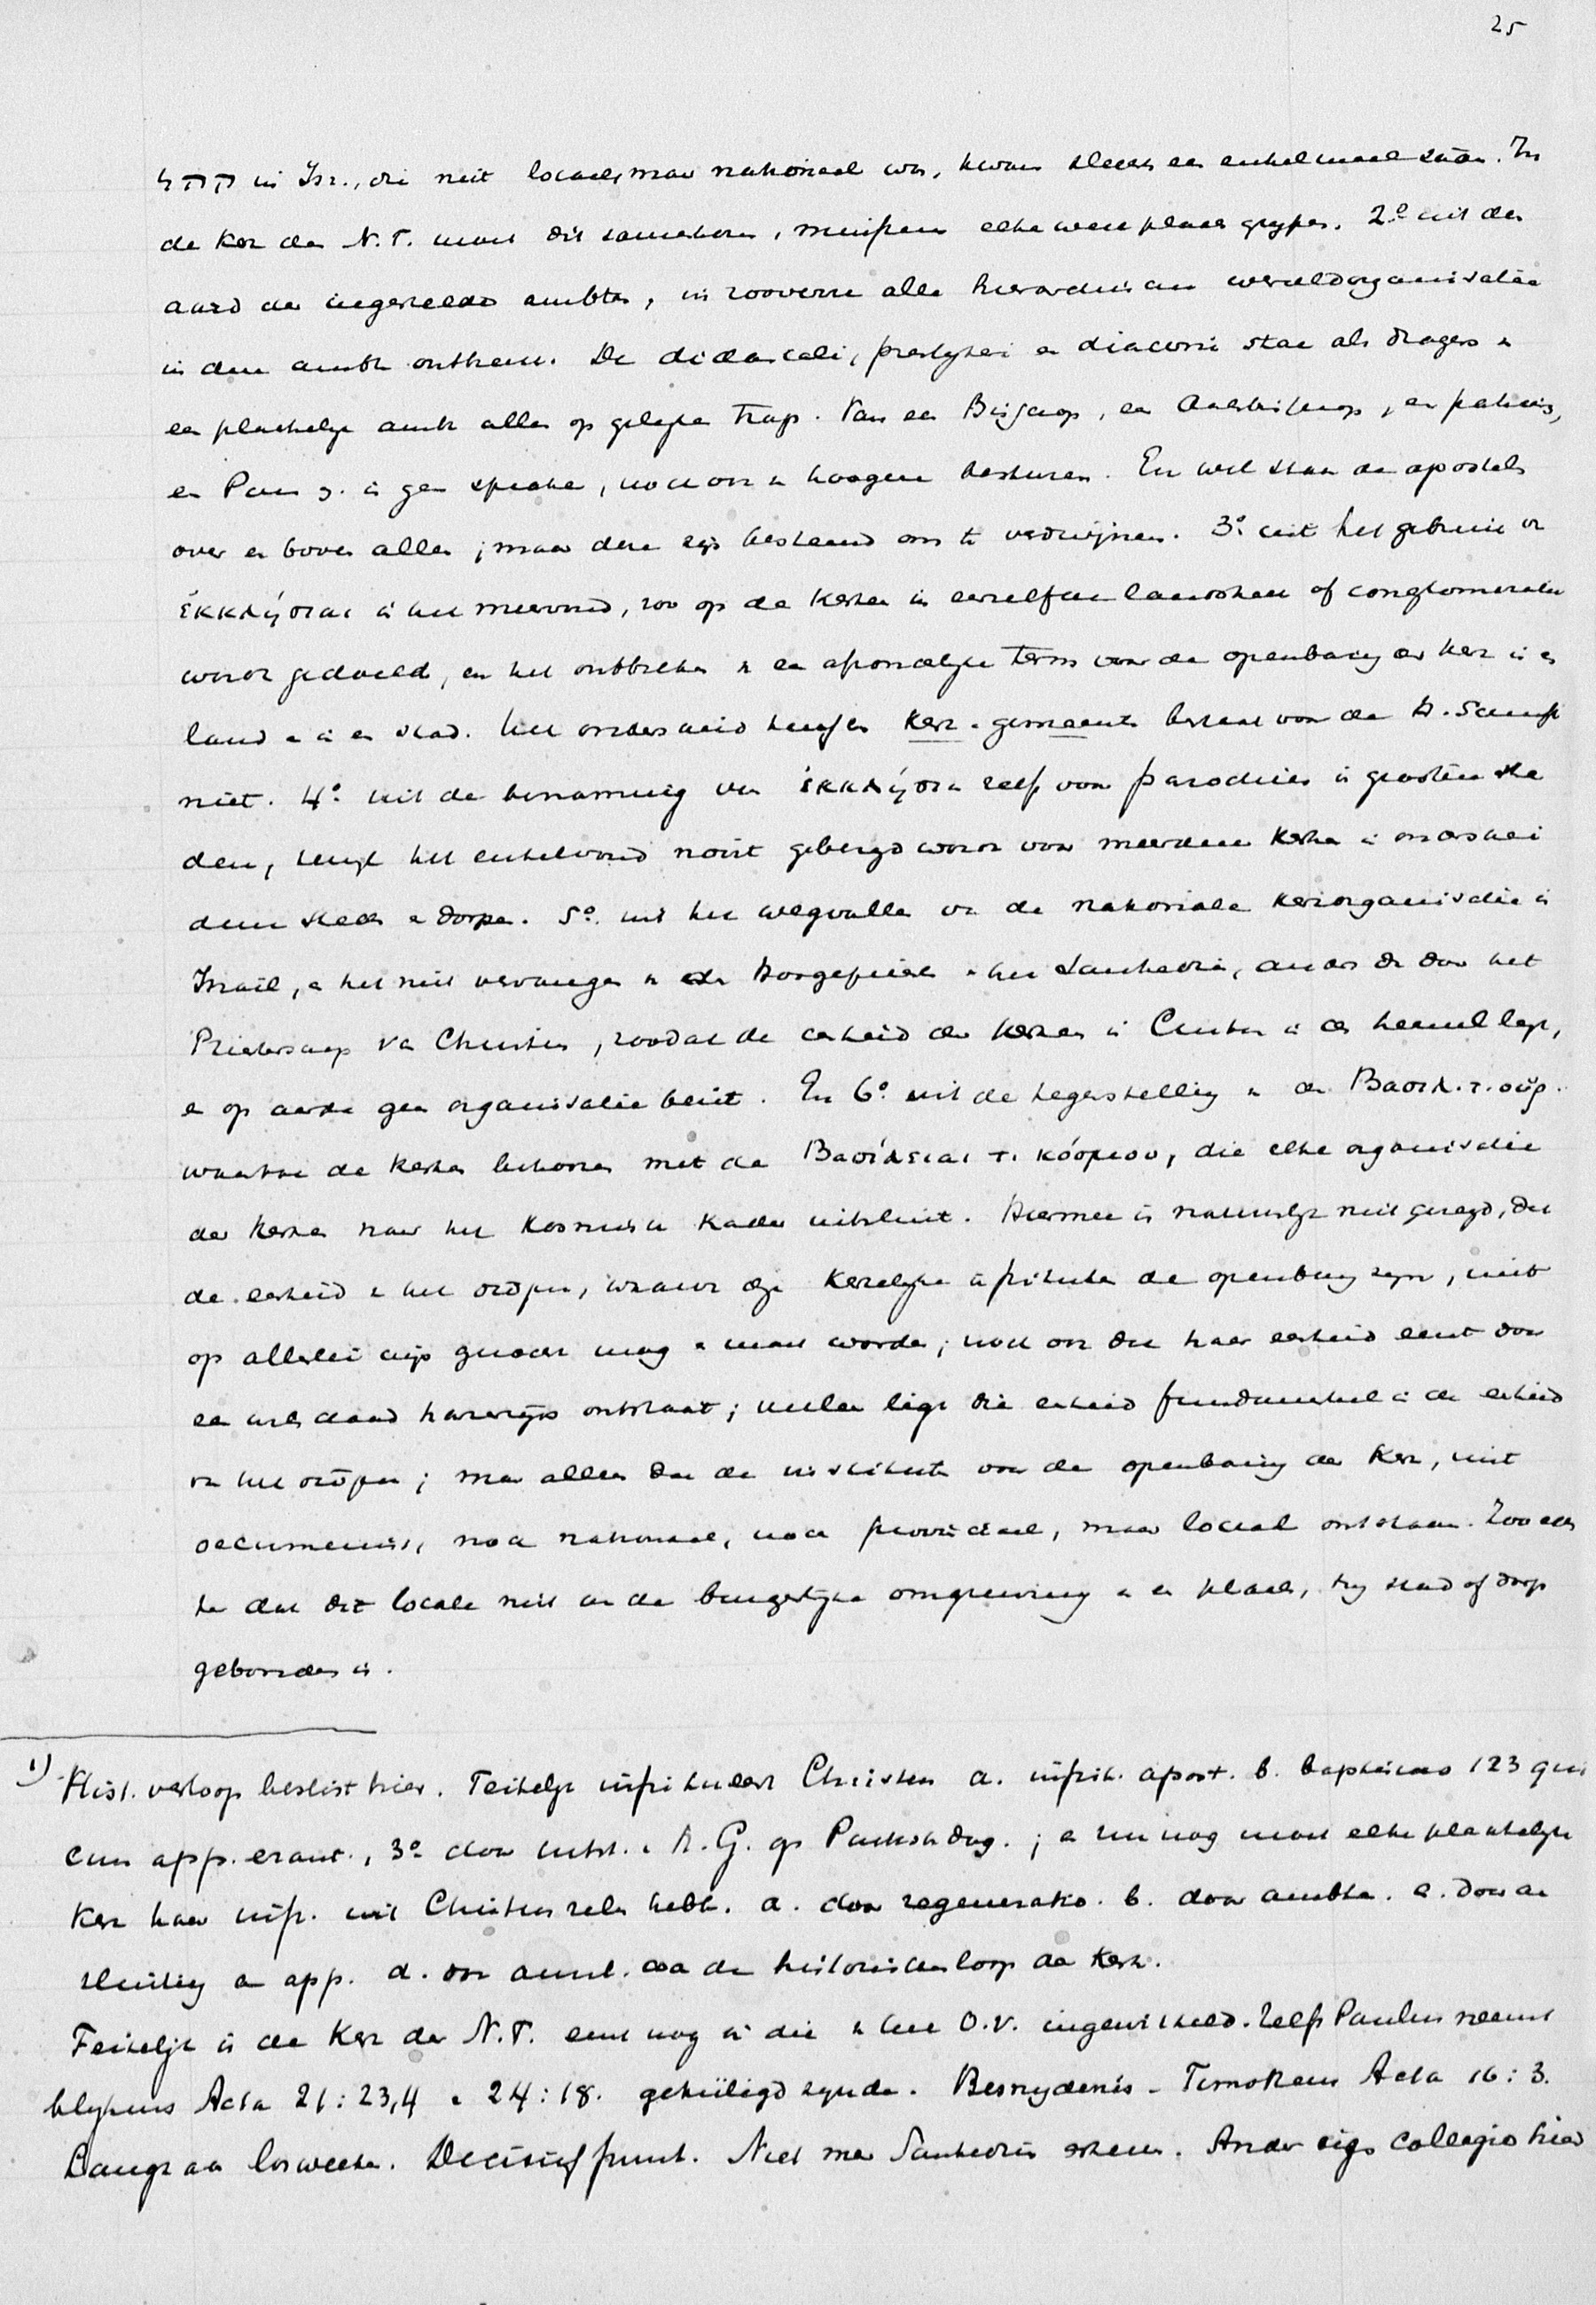 25
קהל in Isr., die niet locaal, maar nationaal was, kwam slechts een enkel maal saam. In
de Kerk des N.T. moet dit samenkomen, minstens elke week plaats grijpen. 2º uit den
aard der ingestelde ambten, in zooverre alle hierarchische wereldorganisatie
in deze ambten ontbreekt. De didascali, presbyteri en diaconi staan als dragers v.
een plaatselijk ambt allen op gelijken trap. Van een Bisschop, een Aartsbisschop, een patriarch,
een Paus is geen sprake, noch ook v. hoogere besturen. En wel staan de apostelen
over en boven allen; maar deze zijn bestemd om te verdwijnen. 3º uit het gebruik v.
ἐκκλησίαι in het meervoud, zoo op de Kerken in eenzelfde landschap of conglomeraten
wordt gedoeld, en het ontbreken v. een afzonderlijke term voor de openbaring der kerk in een
land en in een stad. Het onderscheid tusschen Kerk en gemeente bestaat voor de H. Schrift
niet. 4º uit de benaming van ἐκκλησία zelf voor parochiën in grootere ste
den, terwijl het enkelvoud nooit gebezigd wordt voor meerdere Kerken in onderschei
dene steden en dorpen. 5º uit het wegvallen van de nationale Kerkorganisatie in
Israël, en het niet vervangen v. den Hoogepriester en het Sanhedrin, anders dan door het
Priesterschap van Christus, zoodat de eenheid der Kerken in Christus in den hemel ligt,
en op aarde geen organisatie bezit. En 6º uit de tegenstelling v. de Βασιλ. τ. οὐρ.
waartoe de Kerken behooren met de Βασίλειαι τ. κόσμου, die elke organisatie
der Kerken naar het Kosmische Kader uitsluit. Hiermee is natuurlijk niet gezegd, dat
de eenheid v. het σῶμα, waarvan deze Kerkelijke instituten de openbaring zijn, niet
op allerlei wijs gezocht mag en moet worden; noch ook dat haar eenheid eerst door
een wilsdaad harerzijds ontstaat; veeleer ligt die eenheid fundamenteel in de eenheid
van het σῶμα; maar alleen dat de instituten voor de openbaring der Kerk, niet
oecumenisch, noch nationaal, noch provinciaal, maar locaal ontstaan. Zoo echter
dat dit locale niet aan de burgerlijke omgrenzing v. een plaats, hetzij stad of dorp
gebonden is.
1) Hist. verloop beslist hier. Feitelijk institueert Christus a. instit. apost. b. baptismo 123 qui
cum app. erant., 3º door uitst. v. H. G. op Pinksterdag.; en nu nog moet elke plaatselijke
Kerk haar inst. uit Christus zelf hebb. a. door regeneratio. b. door ambten. c. door aan
sluiting aan app. d. door aansl. aan den historischen loop der Kerk.
Feitelijk is de Kerk des N.T. eerst nog in die v. het O.V. ingewikkeld. Zelfs Paulus neemt
blijkens Acta 21:23,4 en 24:18. geheiligd zijnde. Besnijdenis - Timotheus Acta 16:3.
Langzaam losweeken. Decisief punt. Niet meer Sanhedrin erkenn. Ander eigen Collegio hier